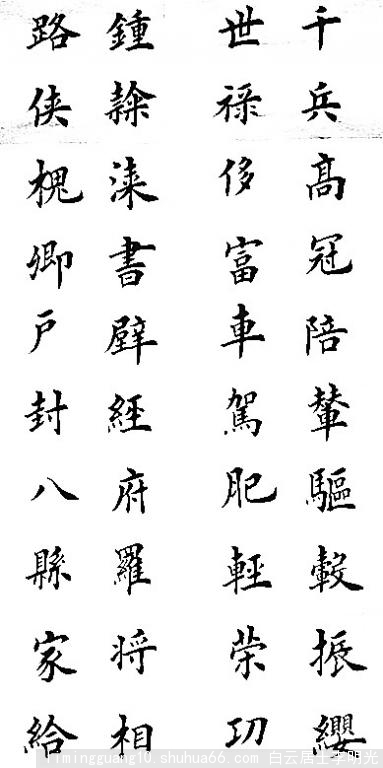 千兵髙冠陪輦驅轂振纓
世禄侈富車駕肥輕策功
鍾隸漆書壁經府羅将相
路侠槐卿户封八縣家給
limingguang10.shuhua66.com 白云居士李明光